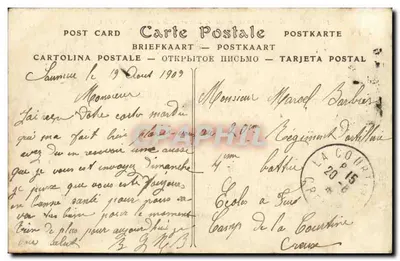 POST CARD Carte Postale POSTKARTE
BRIEFKAART — POSTKAART
CARTOLINA POSTALE — ОТКРЫТОЕ ПИСЬМО — TARJETA POSTAL
Saumur le 19 Aout 1909
Monsieur
J'ai reçu votre carte mardi
qui ma fait bien plaisir
avez du en recevoir une aussi
que je vous est envoyez dimanche
je pense que vous ette toujours
en bonne santé pour nous
va très bien pour le moment
rien de plus pour aujourdhui je
vous salut
Monsieur Marcel Barbier
Regiment d'artillerie
4eme battie
Ecoles a feu
Camp de la Courtine
Creuse
LA COURTINE
20 15